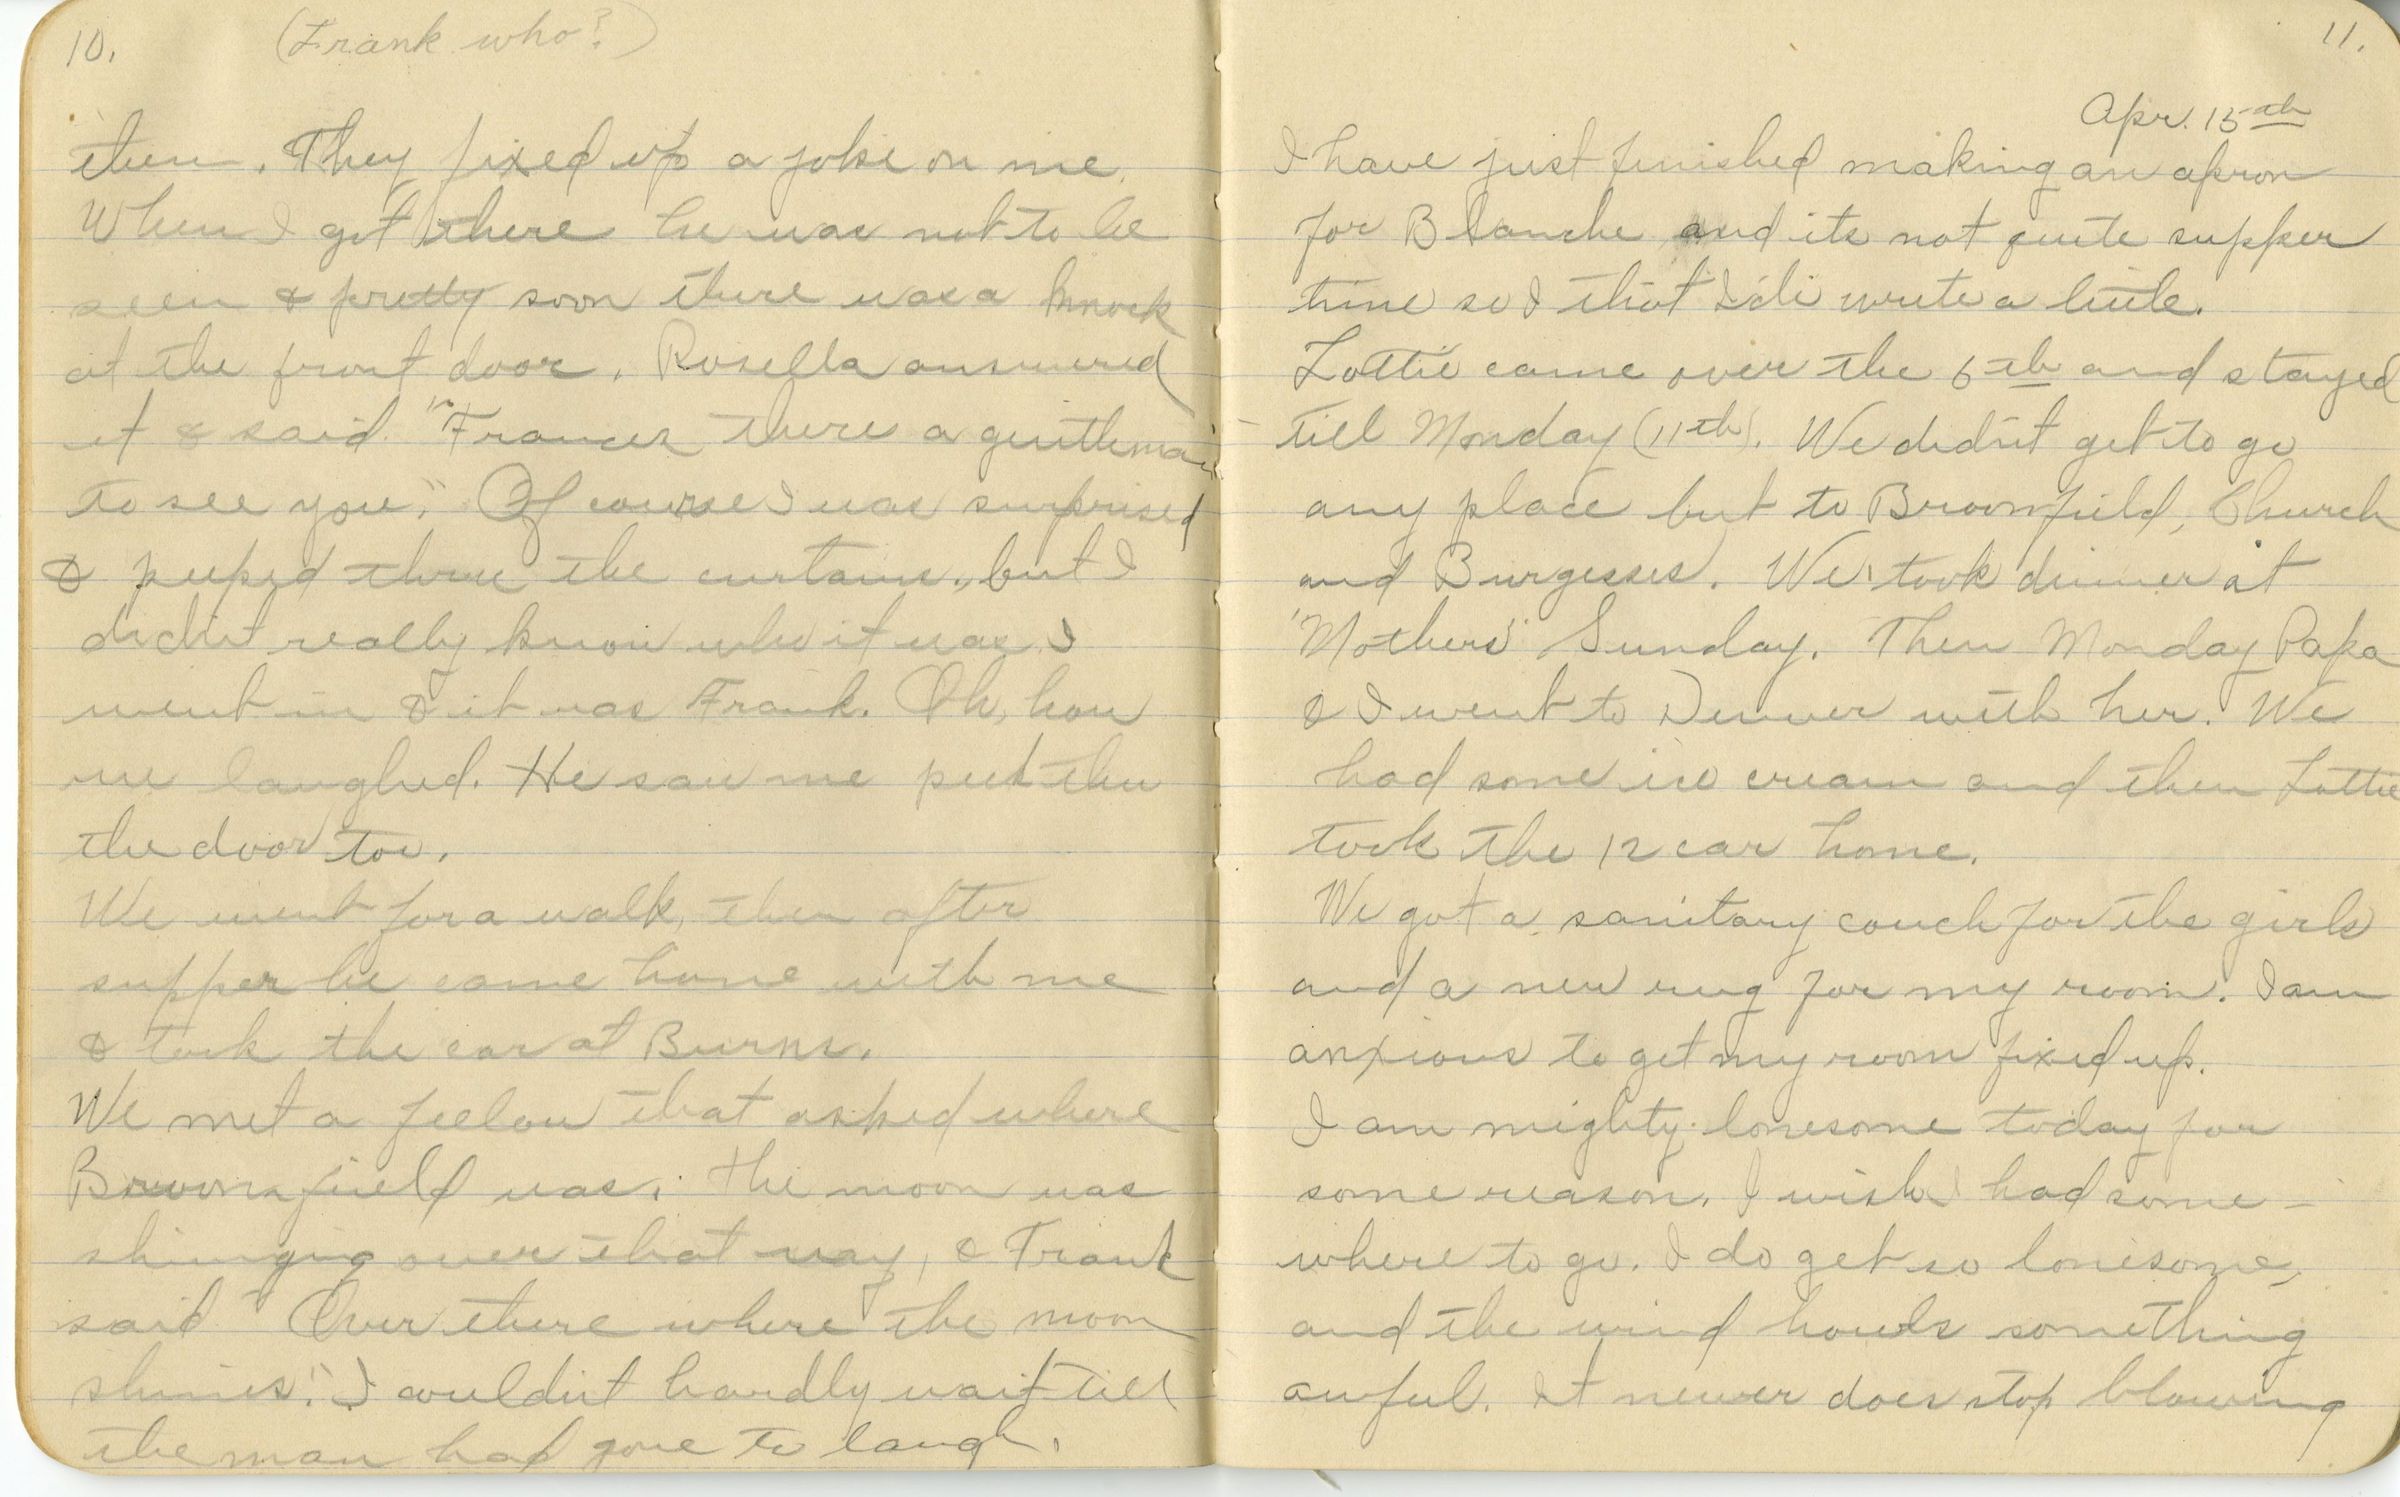 10.
(Frank who?)
them. They fixed up a joke on me.
When I got there he was not to be
seen & pretty soon there was a knock
at the front door. Rosella answered
it & said "Frances there a gentleman
to see you." Of course I was surprised
& peeped thru the curtains, but I
didn't really know who it was I
went in & it was Frank. Oh, how
we laughed. He saw me peek thru
the door too.
We went for a walk, then after
supper he came home with me
& took the car at Burns.
We met a feelow that asked where
Broomfield was. The moon was
shinging over that way, & Frank
said "Over there where the moon
shines." I couldn't hardly wait till
the man had gone to laugh.
11.
Apr. 15th
I have just finished making an apron
for Blanche and its not quite supper
time so I thot I'd write a little.
Lottie came over the 6th and stayed
till Monday (11th). We didn't get to go
any place but to Broomfield, Church
and Burgesses. We took dinner at
"Mothers" Sunday. Then Monday Papa
& I went to Denver with her. We
had some ice cream and then Lottie
took the 12 car home.
We got a sanitary couch for the girls
and a new rug for my room. I am
anxious to get my room fixed up.
I am mighty lonesome today for
some reason. I wish I had some-
where to go. I do get so lonesome,
and the wind howls something
awful. It never does stop blowing